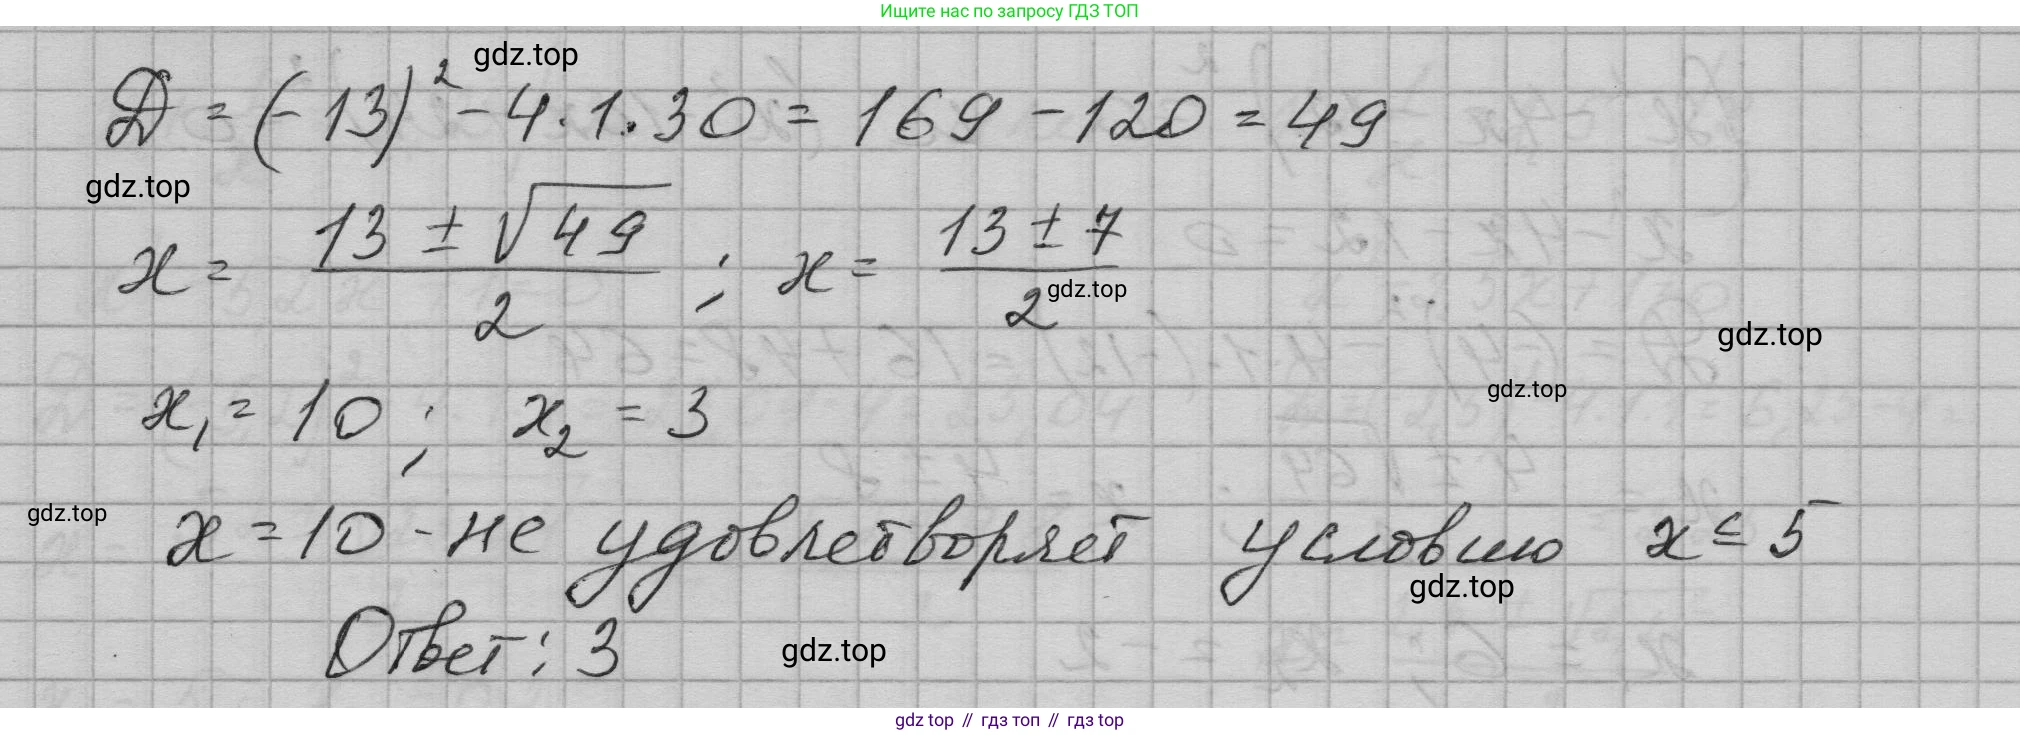 Ищите нас по запросу ГДЗ ТОП
gdz.top
Д = (-13)² - 4·1·30 = 169 - 120 = 49
gdz.top
x = (13 ± √49)/2 ; x = (13 ± 7)/2
gdz.top
gdz.top
gdz.top
x₁ = 10 ; x₂ = 3
gdz.top
x = 10 - не удовлетворяет условию x ≤ 5
gdz.top
Ответ: 3
gdz.top
gdz top // гдз топ // гдз top